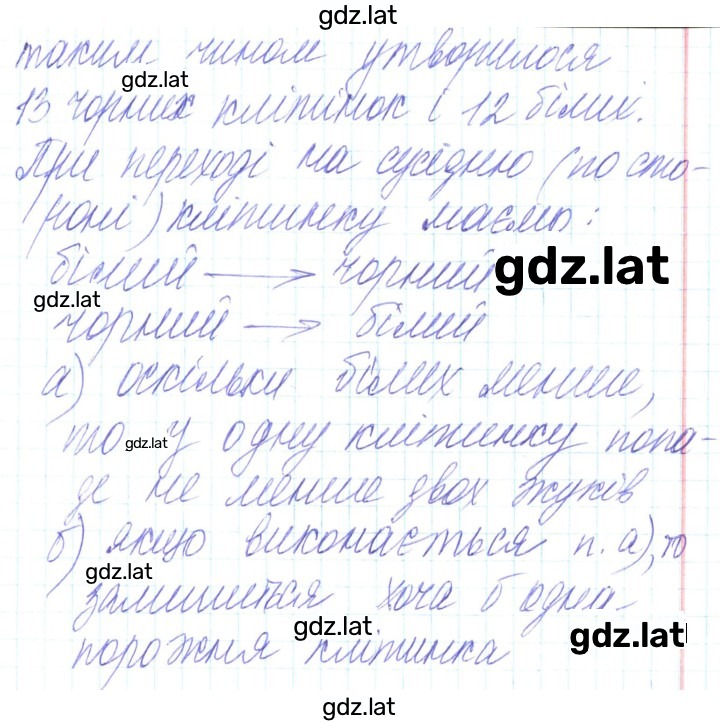 gdz.lat
таким чином утворилося
gdz.lat
13 чорних клітинок і 12 білих.
При переході на сусідню (по сто-
роні) клітинку маємо:
білий → чорний
gdz.lat
gdz.lat
чорний → білий
а) оскільки білих менше,
то у одну клітинку попа-
gdz.lat
де не менше двох жуків
б) якщо виконається п. а), то
gdz.lat
залишиться хоча б одна
gdz.lat
gdz.lat
порожня клітинка
gdz.lat